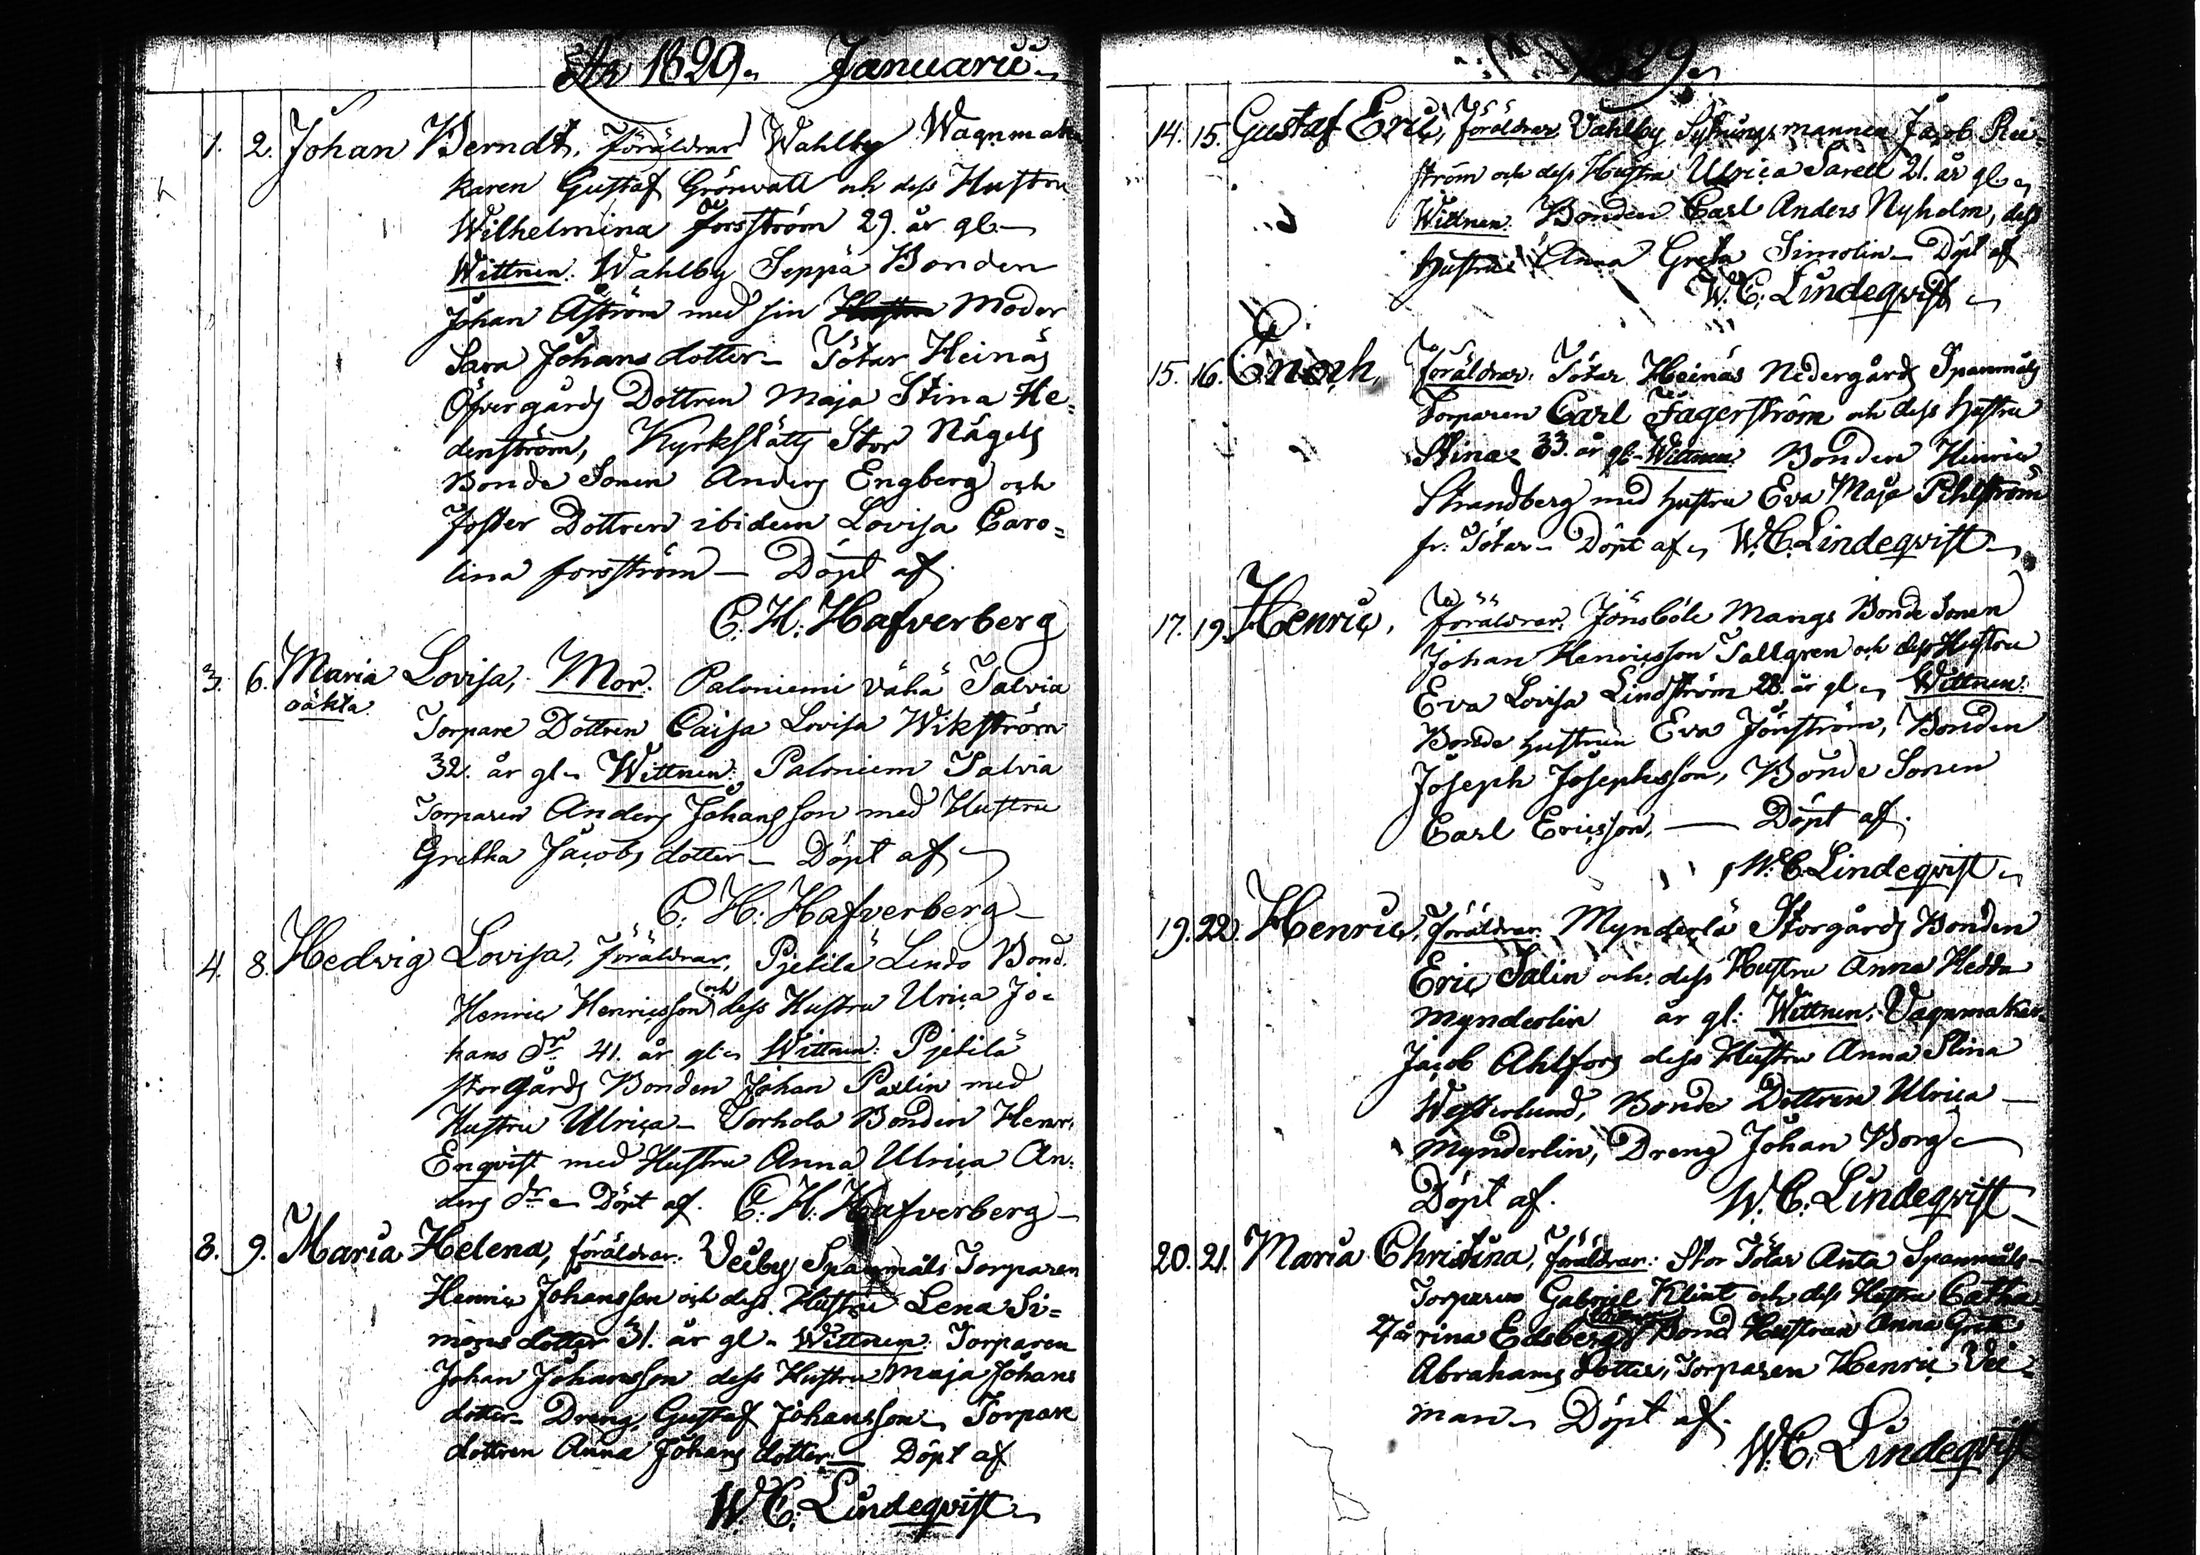 År 1829. Januarii
1. 2. Johan Berndt, Föräldrar Wahlby Wagnma
karen Gustaf Grönvall och dess Hustru
Wilhelmina Forsström 29. år gl.
Wittnen. Wahlby Seppä Bonden
Johan Åström med sin Moder
Sara Johans dotter – Tötar Heinäs
Öfvergårds Dottren Maja Stina He=
denström, Kyrkslätts Stor Nägels
Bonde Sonen Anders Engberg och
Foster Dottren ibidem Lovisa Caro=
lina Forsström – Döpt af
C. H. Hafverberg
3. 6. Maria Lovisa, Mor. Paloniemi Vähä Salvia
oäkta. Torpare Dottren Caisa Lovisa Wikström
32. år gl. Wittnen: Paloniem Salvia
Torparen Anders Johansson med Hustru
Gretha Jacobs dotter – Döpt af
C. H. Hafverberg
4. 8. Hedvig Lovisa, Föräldrar, Pjetilä Lindo Bond.
Henric Henricsson och dess Hustru Urica Jo=
hans dr. 41. år gl. Wittnen: Pjetilä
Storgårds Bonden Johan Palin med
Hustru Ulrica – Torhola Bonden Henr.
Enqvist med Hustru Anna Ulrica An=
ders dr. Döpt af. C. H. Hafverberg
8. 9. Maria Helena, föräldrar. Veiby Spanmåls Torparen
Henric Johansson och dess Hustru Lena Si=
mons dotter 31. år gl. Wittnen. Torparen
Johan Johansson dess Hustru Maja Johans
dotter – Dreng Gustaf Johansson, Torpare
dottren Anna Johans dotter – Döpt af
W. C. Lindeqvist
1829.
14. 15. Gustaf Eric, föräldrar. Vahlby Sytningsmannen Jacob Ru=
ström och dess Hustru Ulrica Sarell 21. år gl.
Wittnen. Bonden Carl Anders Nyholm, dess
Hustru Anna Greta Simolin – Döpt af
W. C. Lindeqvist
15. 16. Enoch, Föräldrar. Tötar Heinäs Nedergårds Spanmåls
Torparen Carl Fagerström och dess Hustru
Stina 33. år gl. Wittnen. Bonden Henric
Strandberg med Hustru Eva Maja Pihlström
fr. Tötar – Döpt af W. C. Lindeqvist
17. 19. Henric, Föräldrar. Jönsböle Mangs Bonde Sonen
Johan Henricsson Tallgren och dess Hustru
Eva Lovisa Lindström 28. år gl. Wittnen.
Bonde Hustrun Eva Jönström, Bonden
Joseph Josephsson, Bonde Sonen
Carl Ericsson, – Döpt af.
W. C. Lindeqvist
19. 22. Henric, föräldrar. Mynderlä Storgårds Bonden
Eric Salin och dess Hustru Anna Hedda
Mynderlin år gl: Wittnen: Vagnmakar.
Jacob Ahlfors dess Hustru Anna Stina
Westerlund, Bonde Dottren Ulrica
Mynderlin, Dreng Johan Borg
Döpt af. W. C. Lindeqvist
20. 21. Maria Christina, föräldrar. Stor Tötar Anta Spanmåls=
Torparen Gabriel Klint och dess Hustru Catha
27 år rina Edsberg Wittnen Bond Hustrun Anna Greta
Abrahams Dotter, Torparen Henric Vei=
man – Döpt af.
W. C. Lindeqvist